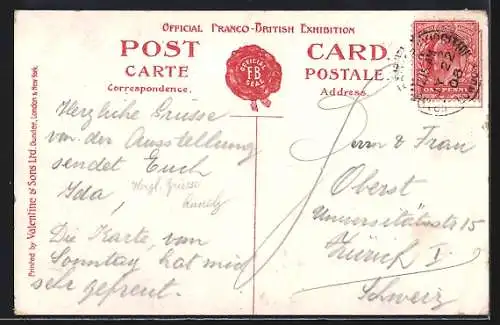 Official Franco-British Exhibition
POST CARD
CARTE POSTALE
Correspondence. Address.
OFFICIAL
F.B
SEAL
ONE PENNY
22
08
Printed by Valentine & Sons Ltd. Dundee, London & New York.
Herzliche Grüsse
von der Ausstellung
sendet Euch
Ida,
Herzl. Grüsse
Die Karte von
Sonntag hat mich
sehr gefreut.
Herrn & Frau
Oberst
Universitätsstr 15
Zürich I.
Schweiz